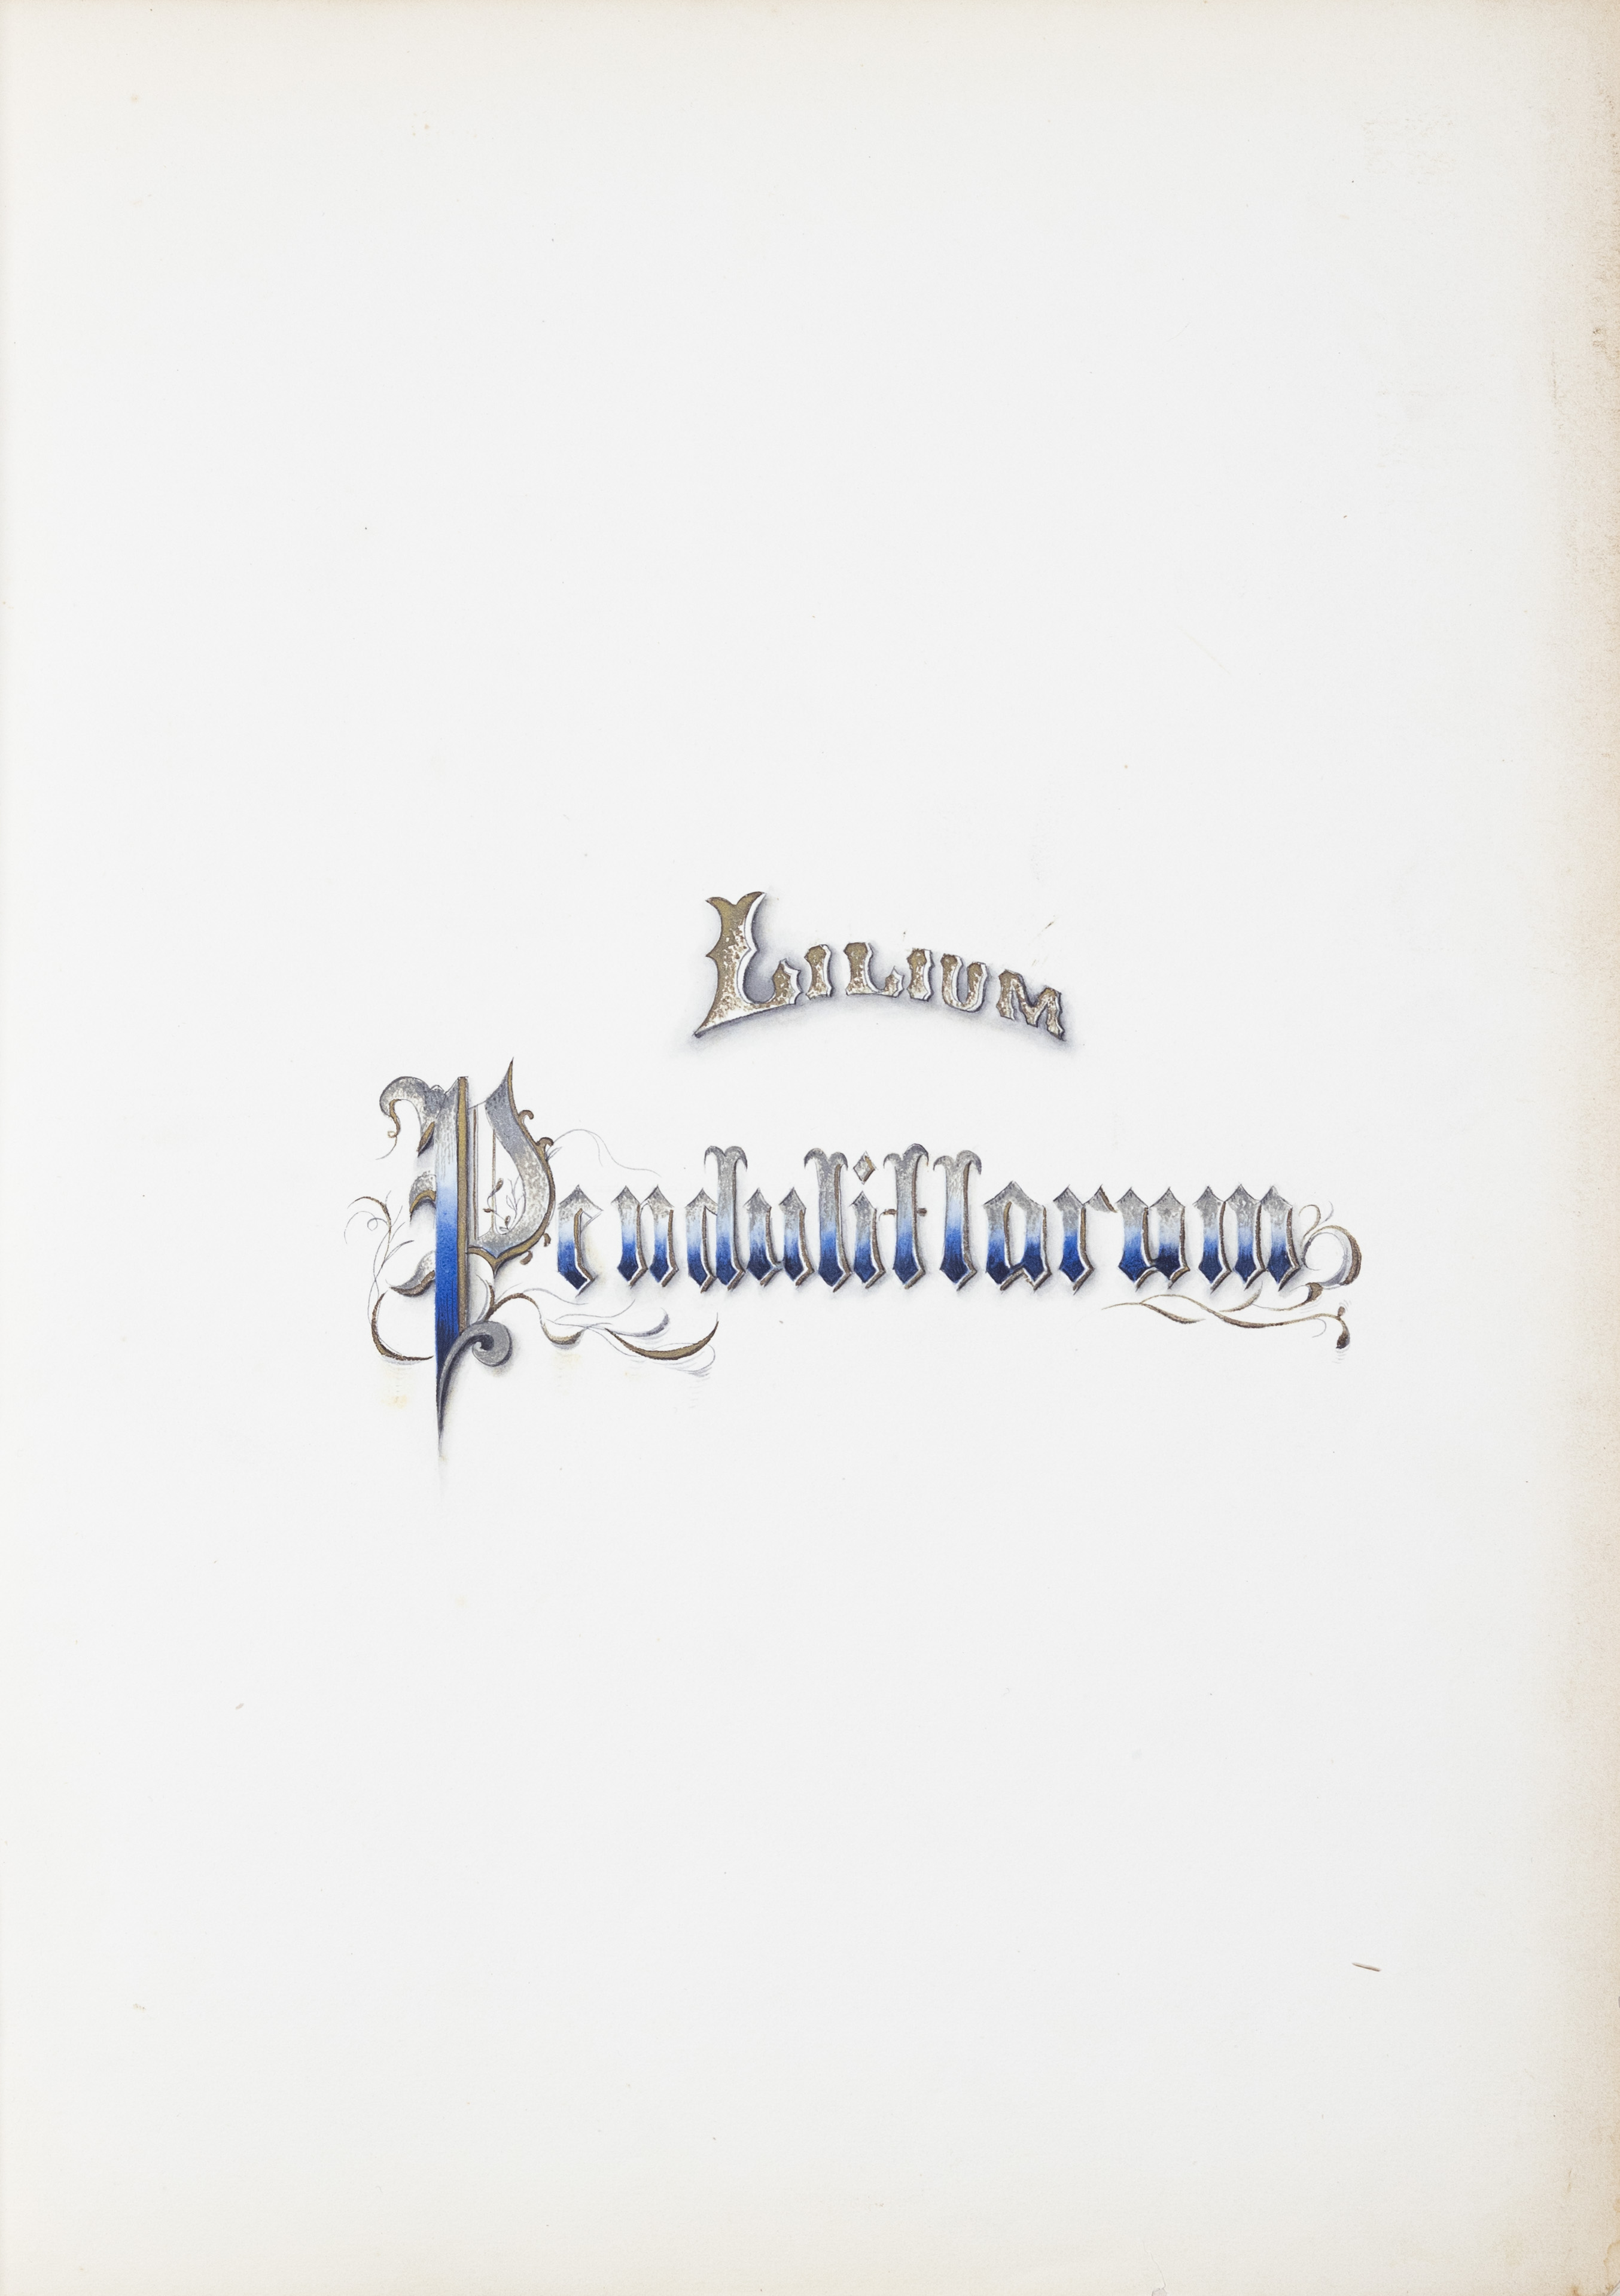 LILIUM
Penduliflorum